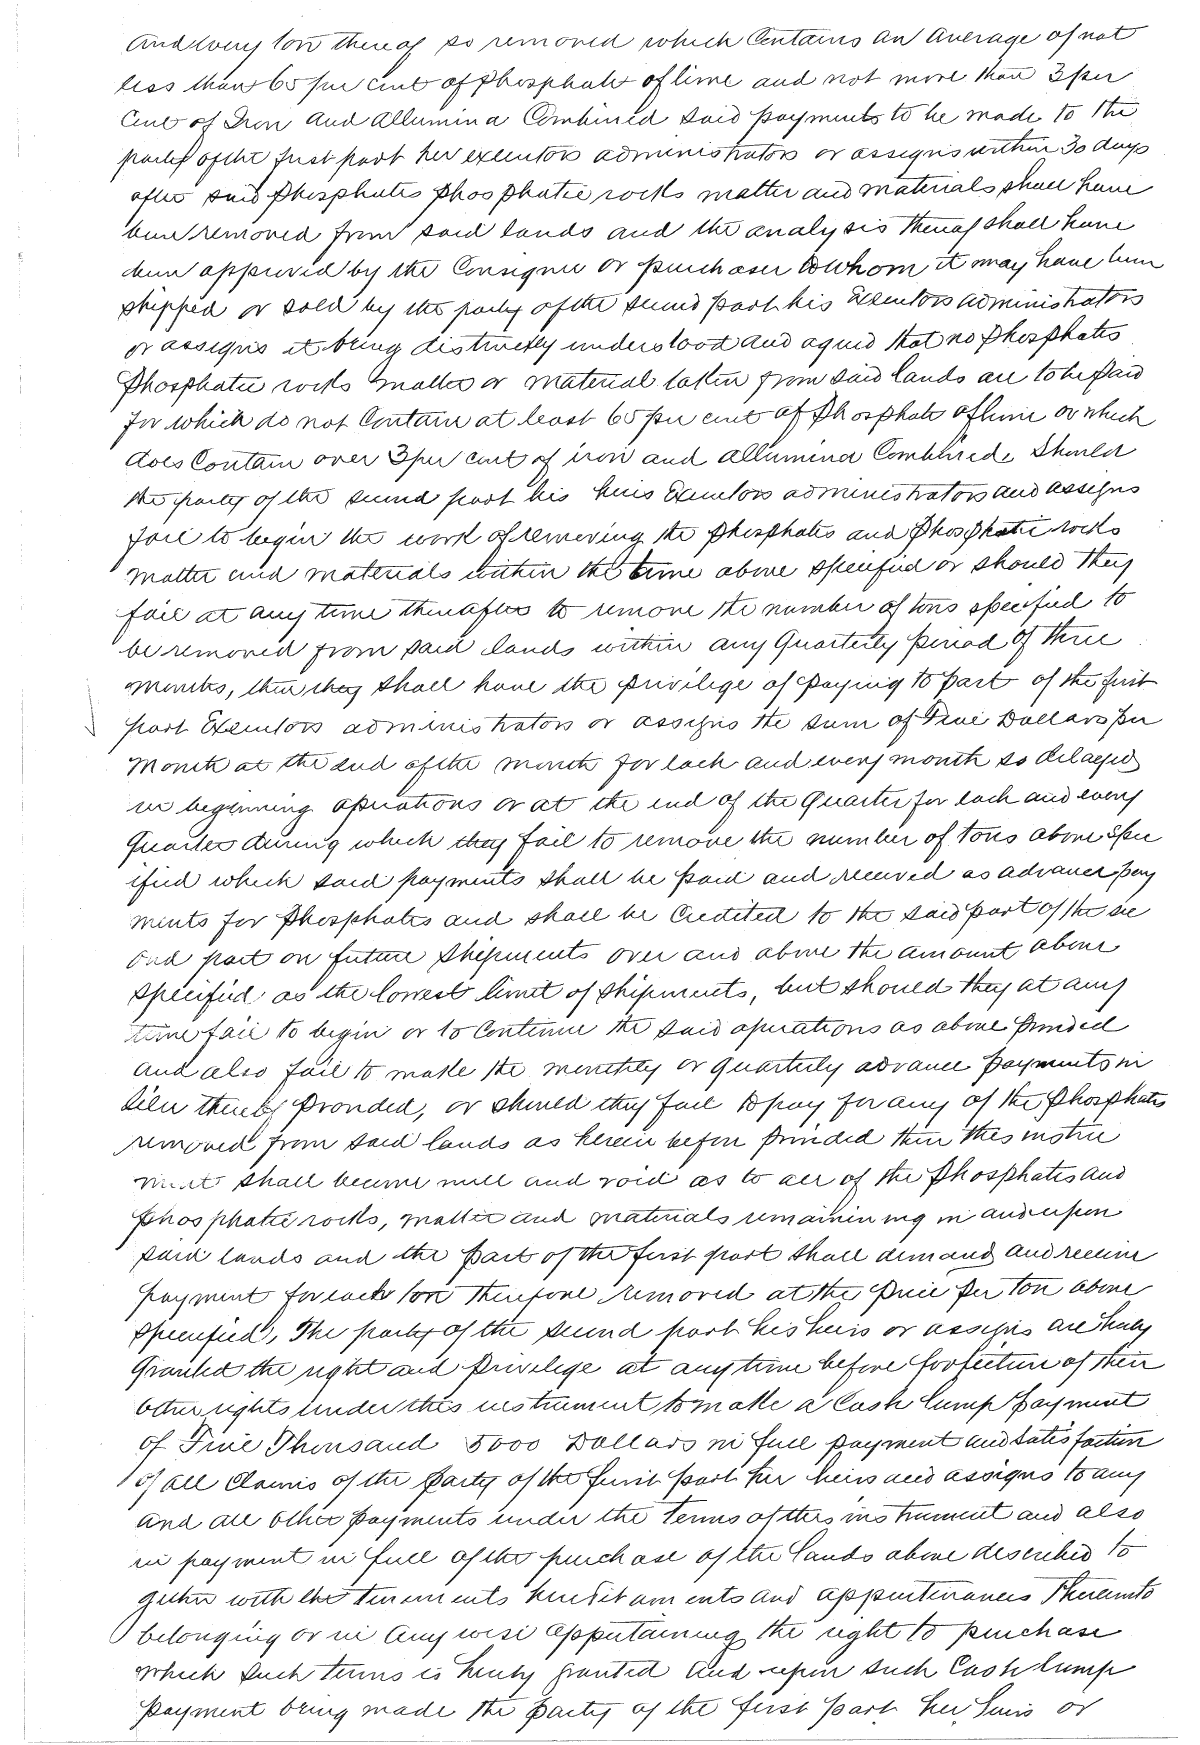 and every ton thereof so removed which Contains an average of not
less than 65 per cent of phosphate of lime and not more than 3 per
Cent of Iron and Allumina Combined said payments to be made to the
party of the first part her executors administrators or assigns within 30 days
after said phosphates phosphatic rocks matter and materials shall have
been removed from said lands and the analysis thereof shall have
been approved by the Consignee or purchaser to whom it may have been
shipped or sold by the party of the second part his Executors administrators
or assigns it being distinctly understood and agreed that no phosphates
phosphatic rocks matter or material taken from said lands are to be paid
for which do not Contain at least 65 per cent of phosphate of lime or which
does Contain over 3 per cent of iron and allumina Combined. Should
the party of the second part his heirs Executors administrators and assigns
fail to begin the work of removing the phosphates and phosphatic rocks
matter and materials within the time above specified or should they
fail at any time thereafter to remove the number of tons specified to
be removed from said lands within any Quarterly period of three
months, then they shall have the privilege of paying to part of the first
part Executors administrators or assigns the sum of Five Dollars per
Month at the end of the month for each and every month so delayed
in beginning operations or at the end of the Quarter for each and every
Quarter during which they fail to remove the number of tons above spec
ified which said payments shall be paid and received as advance pay
ments for phosphates and shall be Credited to the said part of the sec
ond part on future shipments over and above the amount above
specified as the lowest limit of shipments, but should they at any
time fail to begin or to Continue the said operations as above provided
and also fail to make the monthly or quarterly advance payments in
lieu thereby provided, or should they fail to pay for any of the phosphates
removed from said lands as herein before provided then this instru
ment shall become null and void as to all of the phosphates and
phosphatic rocks, matter and materials remaining in and upon
said lands and the part of the first part shall demand and receive
payment for each ton therefore removed at the price per ton above
specified, The party of the second part his heirs or assigns are hereby
Granted the right and privilege at any time before forfeiture of their
other rights under this instrument to make a Cash lump payment
of Five Thousand 5000 Dollars in full payment and satisfaction
of all Claims of the party of the first part her heirs and assigns to any
and all other payments under the terms of this instrument and also
in payment in full of the purchase of the lands above described to
gether with the tenements hereditaments and appurtenances thereunto
belonging or in any wise appertaining the right to purchase
which such terms is hereby granted and upon such Cash lump
payment being made the party of the first part her heirs or